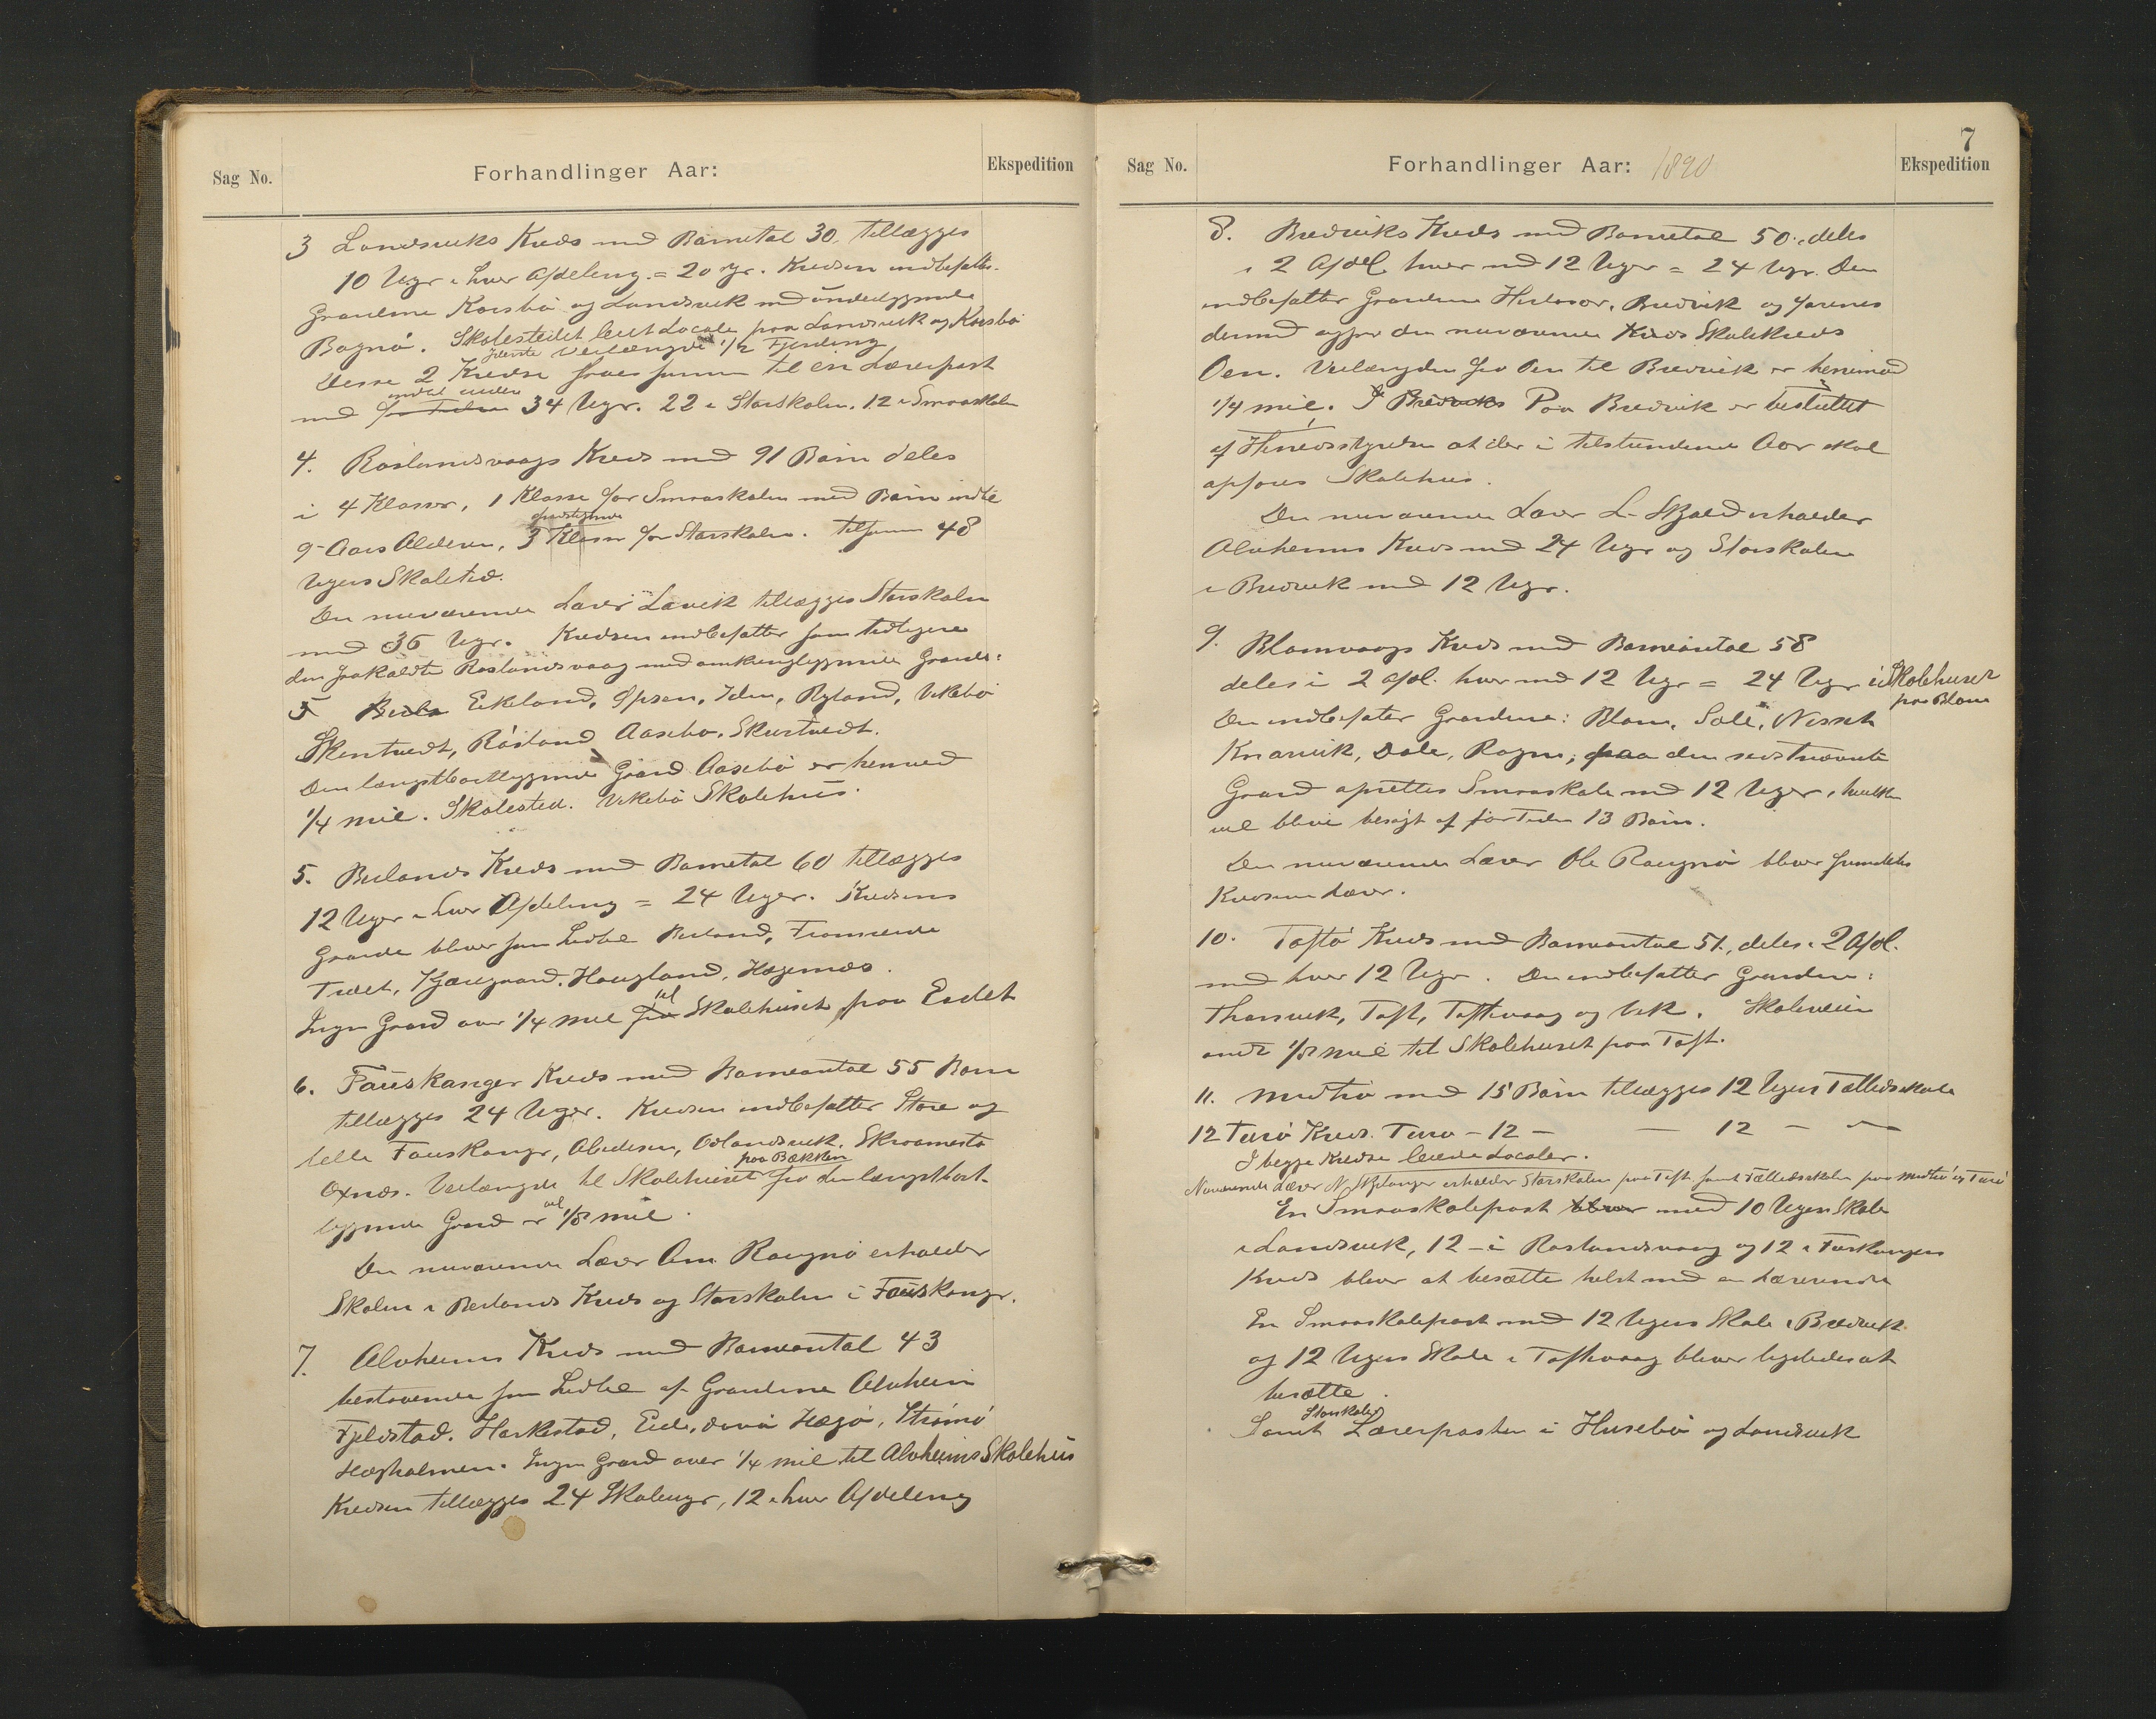 Sag No.
Forhandlinger Aar:
Ekspedition
3 Landsviks Kreds med Barnetal 30. tillægges
10 Uger i hver Afdeling = 20 Ugr. Kredsen indbefatter
Gaardene Korsbö og Landsvik med underliggende
Bognö. Skolestedet leiet Locale paa Landsvik og Korsbö
Störste Veilængde 1/2 Fjerding
Disse 2 Kredse slaaes sammen til en Lærerpost
med 34 Ugr. 22 i Storskolen. 12 i Smaaskolen
4. Röslandsvaags Kreds med 91 Börn deles
i 4 Klasser, 1 Klasse for Smaaskolen med Börn indtil
9 Aars Alderen, 3 Klasser for Storskolen. tilsamm 48
Ugers Skoletid.
Den nuværende Lærer Lavik tillægges Storskolen
med 36 Ugr. Kredsen indbefatter som tidligere
den saakaldte Röslandsvaag med omkringliggende Gaarde:
5 Beila Eikeland, Ypsen, Iden, Ryland, Vikebö
Skentvedt, Rösland Aasebö. Skurtvedt.
Den længstbortliggende Gaard Aasebö er henved
1/4 Mil. Skolested. Vikebö Skolehus.
5. Beilands Kreds med Barnetal 60 tillægges
12 Uger i hver Afdeling = 24 Uger. Kredsens
Gaarde bliver som hidtil Beiland, Framreide
Træet, Kjærgaard, Haugland, Hægernæs.
Ingen Gaard over 1/4 Mil fra til Skolehuset paa Eidet
6. Fauskanger Kreds med Barneantal 55 Börn
tillægges 24 Uger. Kredsen indbefatter Store og
lille Fauskanger, Abedisen, Oslandsvik, Skraamestö
Oxnæs. Veilængde til Skolehuset paa Bækken fra den længstbort-
liggende Gaard er vel 1/8 Mil.
Den nuværende Lærer Om. Raugnö erholder
Skolen i Beilands Kreds og Storskolen i Fauskanger.
7. Alvheims Kreds med Barneantal 43
bestaaende som hidtil af Gaardene Alvheim
Fjeldstad. Harkestad, Eide, Hegö, Strömö
Hægholmen. Ingen Gaard over 1/4 Mil til Alvheims Skolehus
Kredsen tillægges 24 Skoleugr, 12 i hver Afdeling
7
Sag No.
Forhandlinger Aar: 1890
Ekspedition
8. Bredviks Kreds med Barnetal 50., deles
i 2 Afdel. hver med 12 Uger = 24 Ugr. Den
indbefatter Gaardene Hielvær, Bredvik og
dermed opgjør den nuværende Kreds Skolekreds
Oen. Veilængden fra Oen til Bredvik er henimod
1/4 Mil. I Bredviks Paa Bredvik er besluttet
af Herredsstyrelsen at der i tilstundende Aar skal
opføres Skolehus.
Den nuværende Lærer L. Skjold erholder
Alvheims Kreds med 24 Ugr og Storskolen
i Bredvik med 12 Ugr.
9. Blomvaags Kreds med Barneantal 58
deles i 2 Afdl. hver med 12 Ugr = 24 Ugr i Skolehuset
paa Blom
Den indbefatter Gaardene: Blom, Sole, Nesset
Knarvik, Dale, Rogn; paa den sidstnævnte
Gaard oprettes Smaaskole med 12 Uger, hvilken
vil blive besögt af for Tiden 13 Börn.
Den nuværende Lærer Ole Raugnö bliver fremdeles
Kredsens Lærer.
10. Toftö Kreds med Barneantal 51., deles i 2 Afdl.
med hver 12 Ugr. Den indbefatter Gaardene:
Thorsvik, Toft, Toftevaag og Vik. Skoleveien
omtr 1/8 Mil til Skolehuset paa Toft.
11. Midtö med 15 Börn tillægges 12 Ugers Fællesskole
12 Turö Kreds. Turö – 12 – – 12 – –
I begge Kredse leiede Localer.
Nuværende Lærer N. Skjelanger erholder Storskolen paa Toft samt Fællesskolen paa Midtö og Turö
En Smaaskolepost bliver med 10 Ugers Skole
i Landsvik, 12 – i Röslandsvaag og 12 i Fauskangers
Kreds bliver at besætte helst med en Lærerinde
En Smaaskolepost med 12 Ugers Skole i Bredvik
og 12 Ugers Skole i Toftevaag bliver ligeledes at
besætte.
Storskole
Samt Lærerposten i Husebö og Landsvik